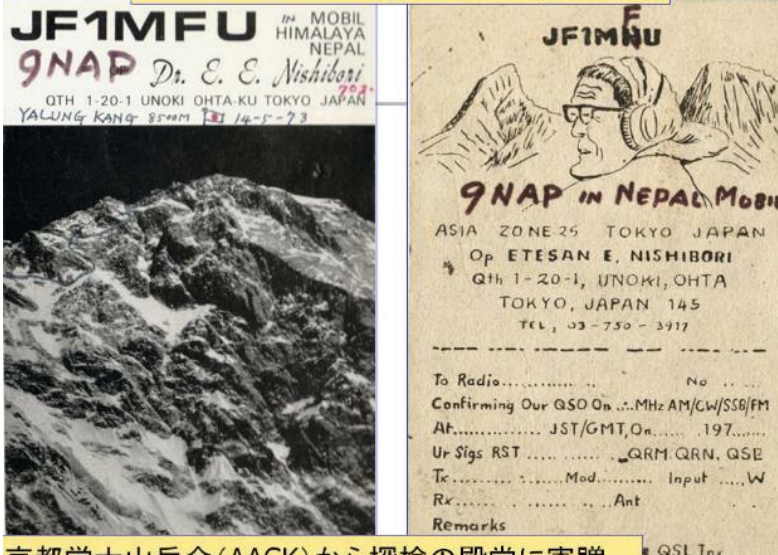 JF1MFU IN MOBIL
HIMALAYA
NEPAL
9NAP Dr. E. E. Nishibori
QTH 1-20-1 UNOKI OHTA-KU TOKYO JAPAN
YALUNG KANG 8500M 14-5-73
JF1MFU
9NAP IN NEPAL MOBIL
ASIA ZONE 25 TOKYO JAPAN
Op ETESAN E, NISHIBORI
Qth 1-20-1, UNOKI, OHTA
TOKYO, JAPAN 145
TEL, 03-750-3917
To Radio............... No .. ...
Confirming Our QSO On ...MHz AM/CW/SSB/FM
At.............. JST/GMT, On...... 197......
Ur Sigs RST ............ QRM. QRN. QSB
Tx............Mod.......... Input ....W
Rx.................Ant
Remarks
QSL Tnx
京都学士山岳会(AACK)から探検の殿堂に寄贈